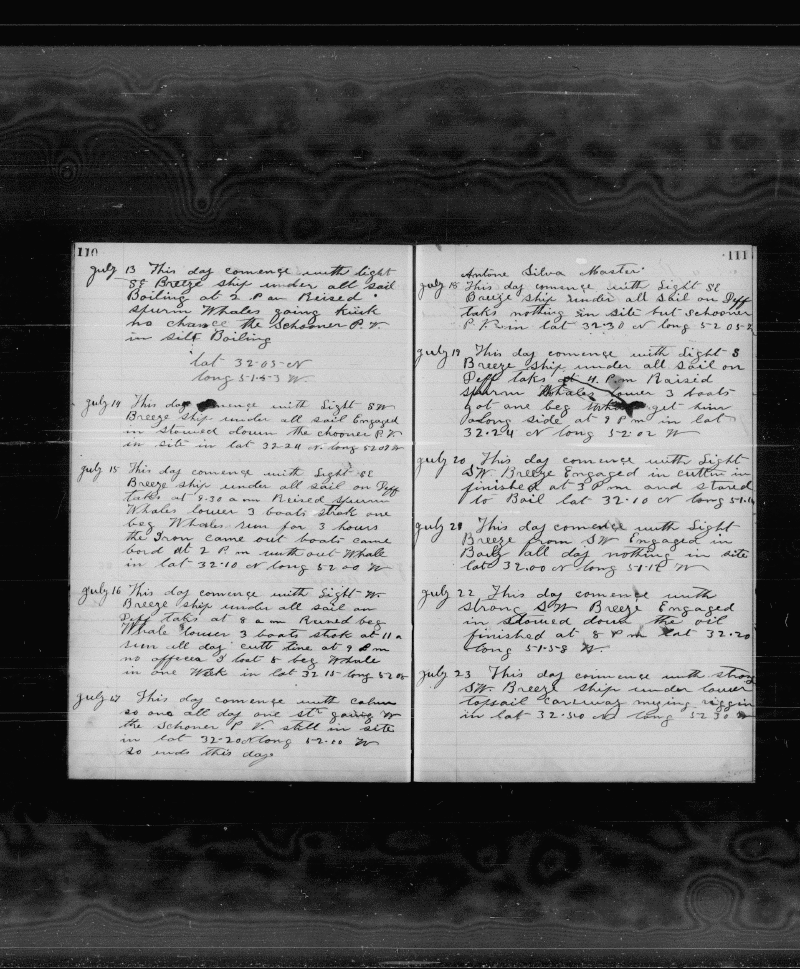 110
July 13 This day comence with light
SE Breeze ship under all sail
Boiling at 2 P am Reised
spurm Whales going kuick
no chance the Schooner P. V.
in silt Boiling
lat 32-05 N
long 51-53 W.
July 14 This day comence with Light SW
Breeze ship under all sail Engaged
in stowed down the chooner P. V.
in site in lat 32-24 N. long 52 09 W
July 15 This day comence with Light SE
Breeze ship under all sail on Deff
taks at 8-30 a m Reised spurm
Whales lower 3 boats strok one
beg Whales run for 3 hours
the Iron came out boats came
bord at 2 P m with out Whale
in lat 32-10 N long 52 00 W
July 16 This day comence with Light W.
Breeze ship under all sail on
Deff taks at 8 a m Reised beg
Whale lower 3 boats strok at 11 a
run all day cutt line at 9 P m
no I lost 5 beg Whale
in one Week in lat 32 15 long 52 05
July 17 This day comence with calm
so one all day one St. going W
the Schoner P. V. still in site
in lat 32-20 N long 52-00 W
so ends this day
111
Antone Silva Master
July 18 This day comence with Light SE
Breeze ship under all sail on Deff
taks nothing in site but schooner
P. V. in lat 32-30 N long 52 05
July 19 This day comence with Light S
Breeze ship under all sail on
Deff taks at 4 P. m Raised
spurm Whales lower 3 boats
got one beg get him
along side at 9 P m in lat
32-24 N long 52-02 W
July 20 This day comence with Light
SW. Breeze Engaged in cuttin in
finished at 3 P m and stared
to Boil lat 32-10 N long 51-
July 21 This day comence with Light
Breeze from SW Engaged in
Boily all day nothing in site
lat 32.00 N long 51-12 W
July 22 This day comence with
strong SW Breeze Engaged
in stowed down the oil
finished at 8 P m lat 32-20
long 51-58 W.
July 23 This day comence with strong
SW. Breeze ship under lower
topsail riggin
in lat 32-50 N long 52 30 W